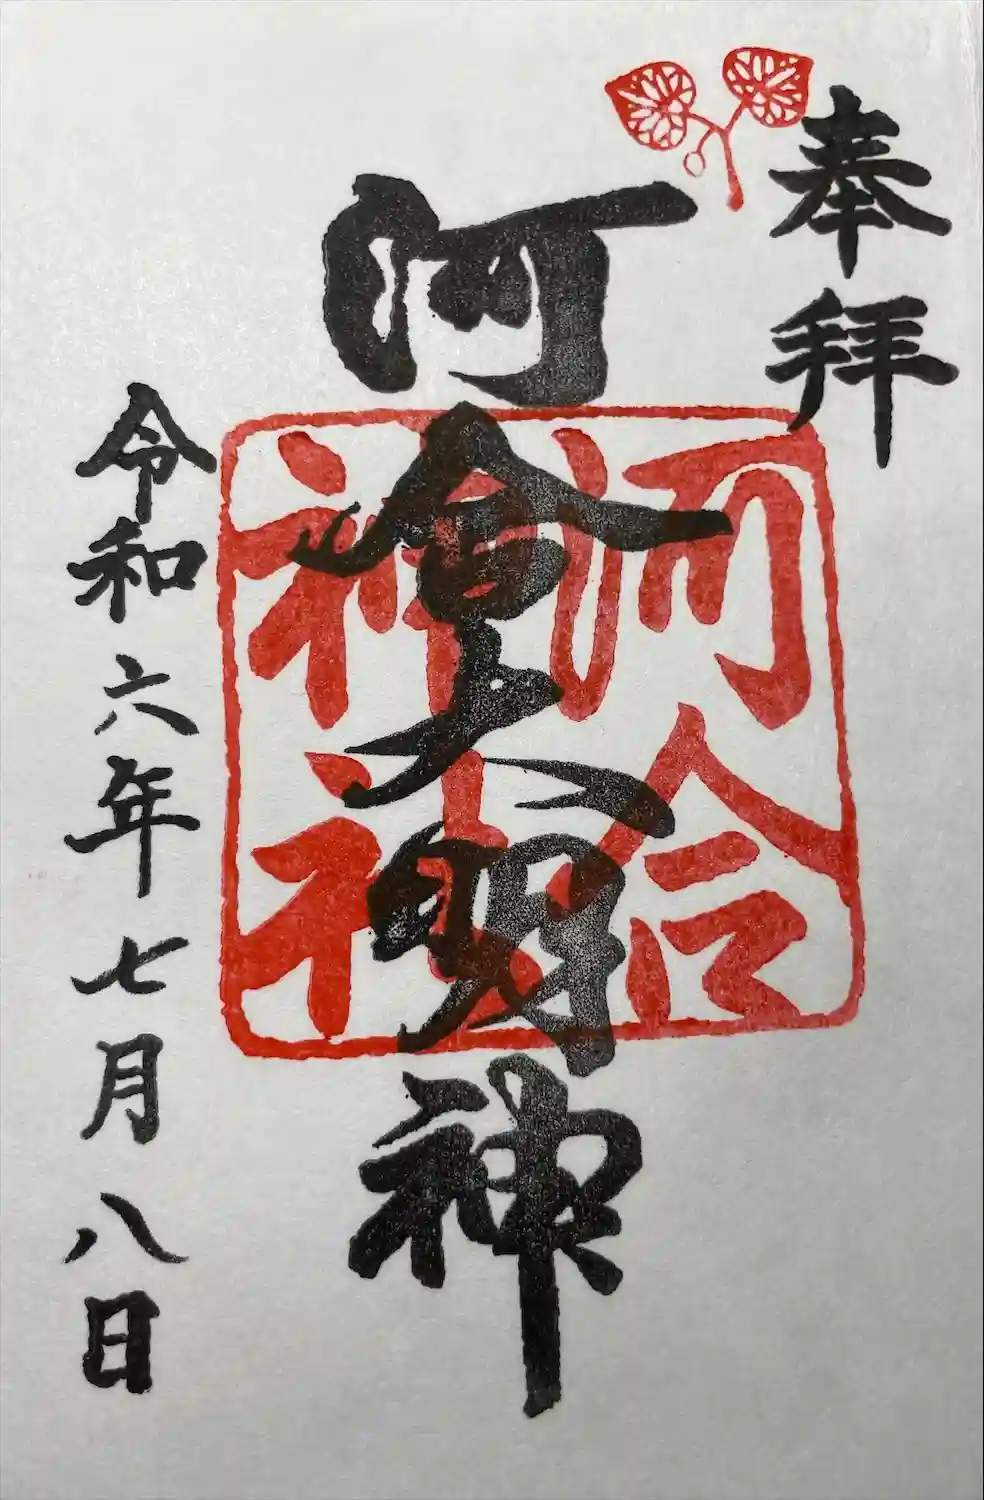 奉拝
河會大明神
河合
神社
令和六年七月八日